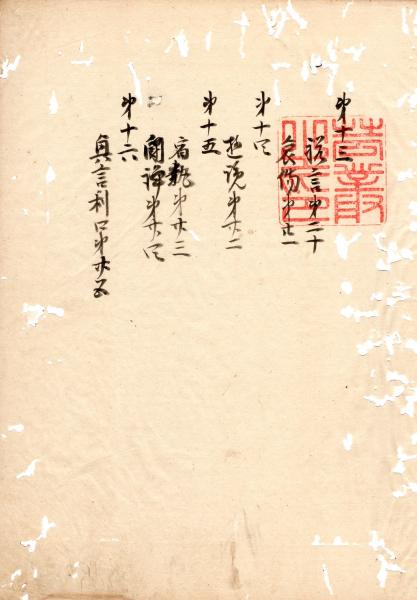 第十三
祝言第二十
哀傷第廿一
第十四
遊覧第廿二
第十五
宿執第廿三
闘諍第廿四
第十六
興言利口第廿五